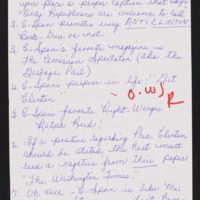 you place a proper caption that says
"Only Republicans are welcome to Call"
2. C-Span promotes every ANTI CLINTON
Book. True or not.
3. C-Span's favorite magazine is
The American Spectator (aka the
Garbage Pail)
4. C-Spans purpose in life: "Get
Clinton"
5. C-Spans favorite Right-Winger
Ralph Reed!
6. If a positive regarding Pres. Clinton
should be stated, the host must
read a negative from their paper
"The Washington Times."
7. Oh well - C-Span is like Ms